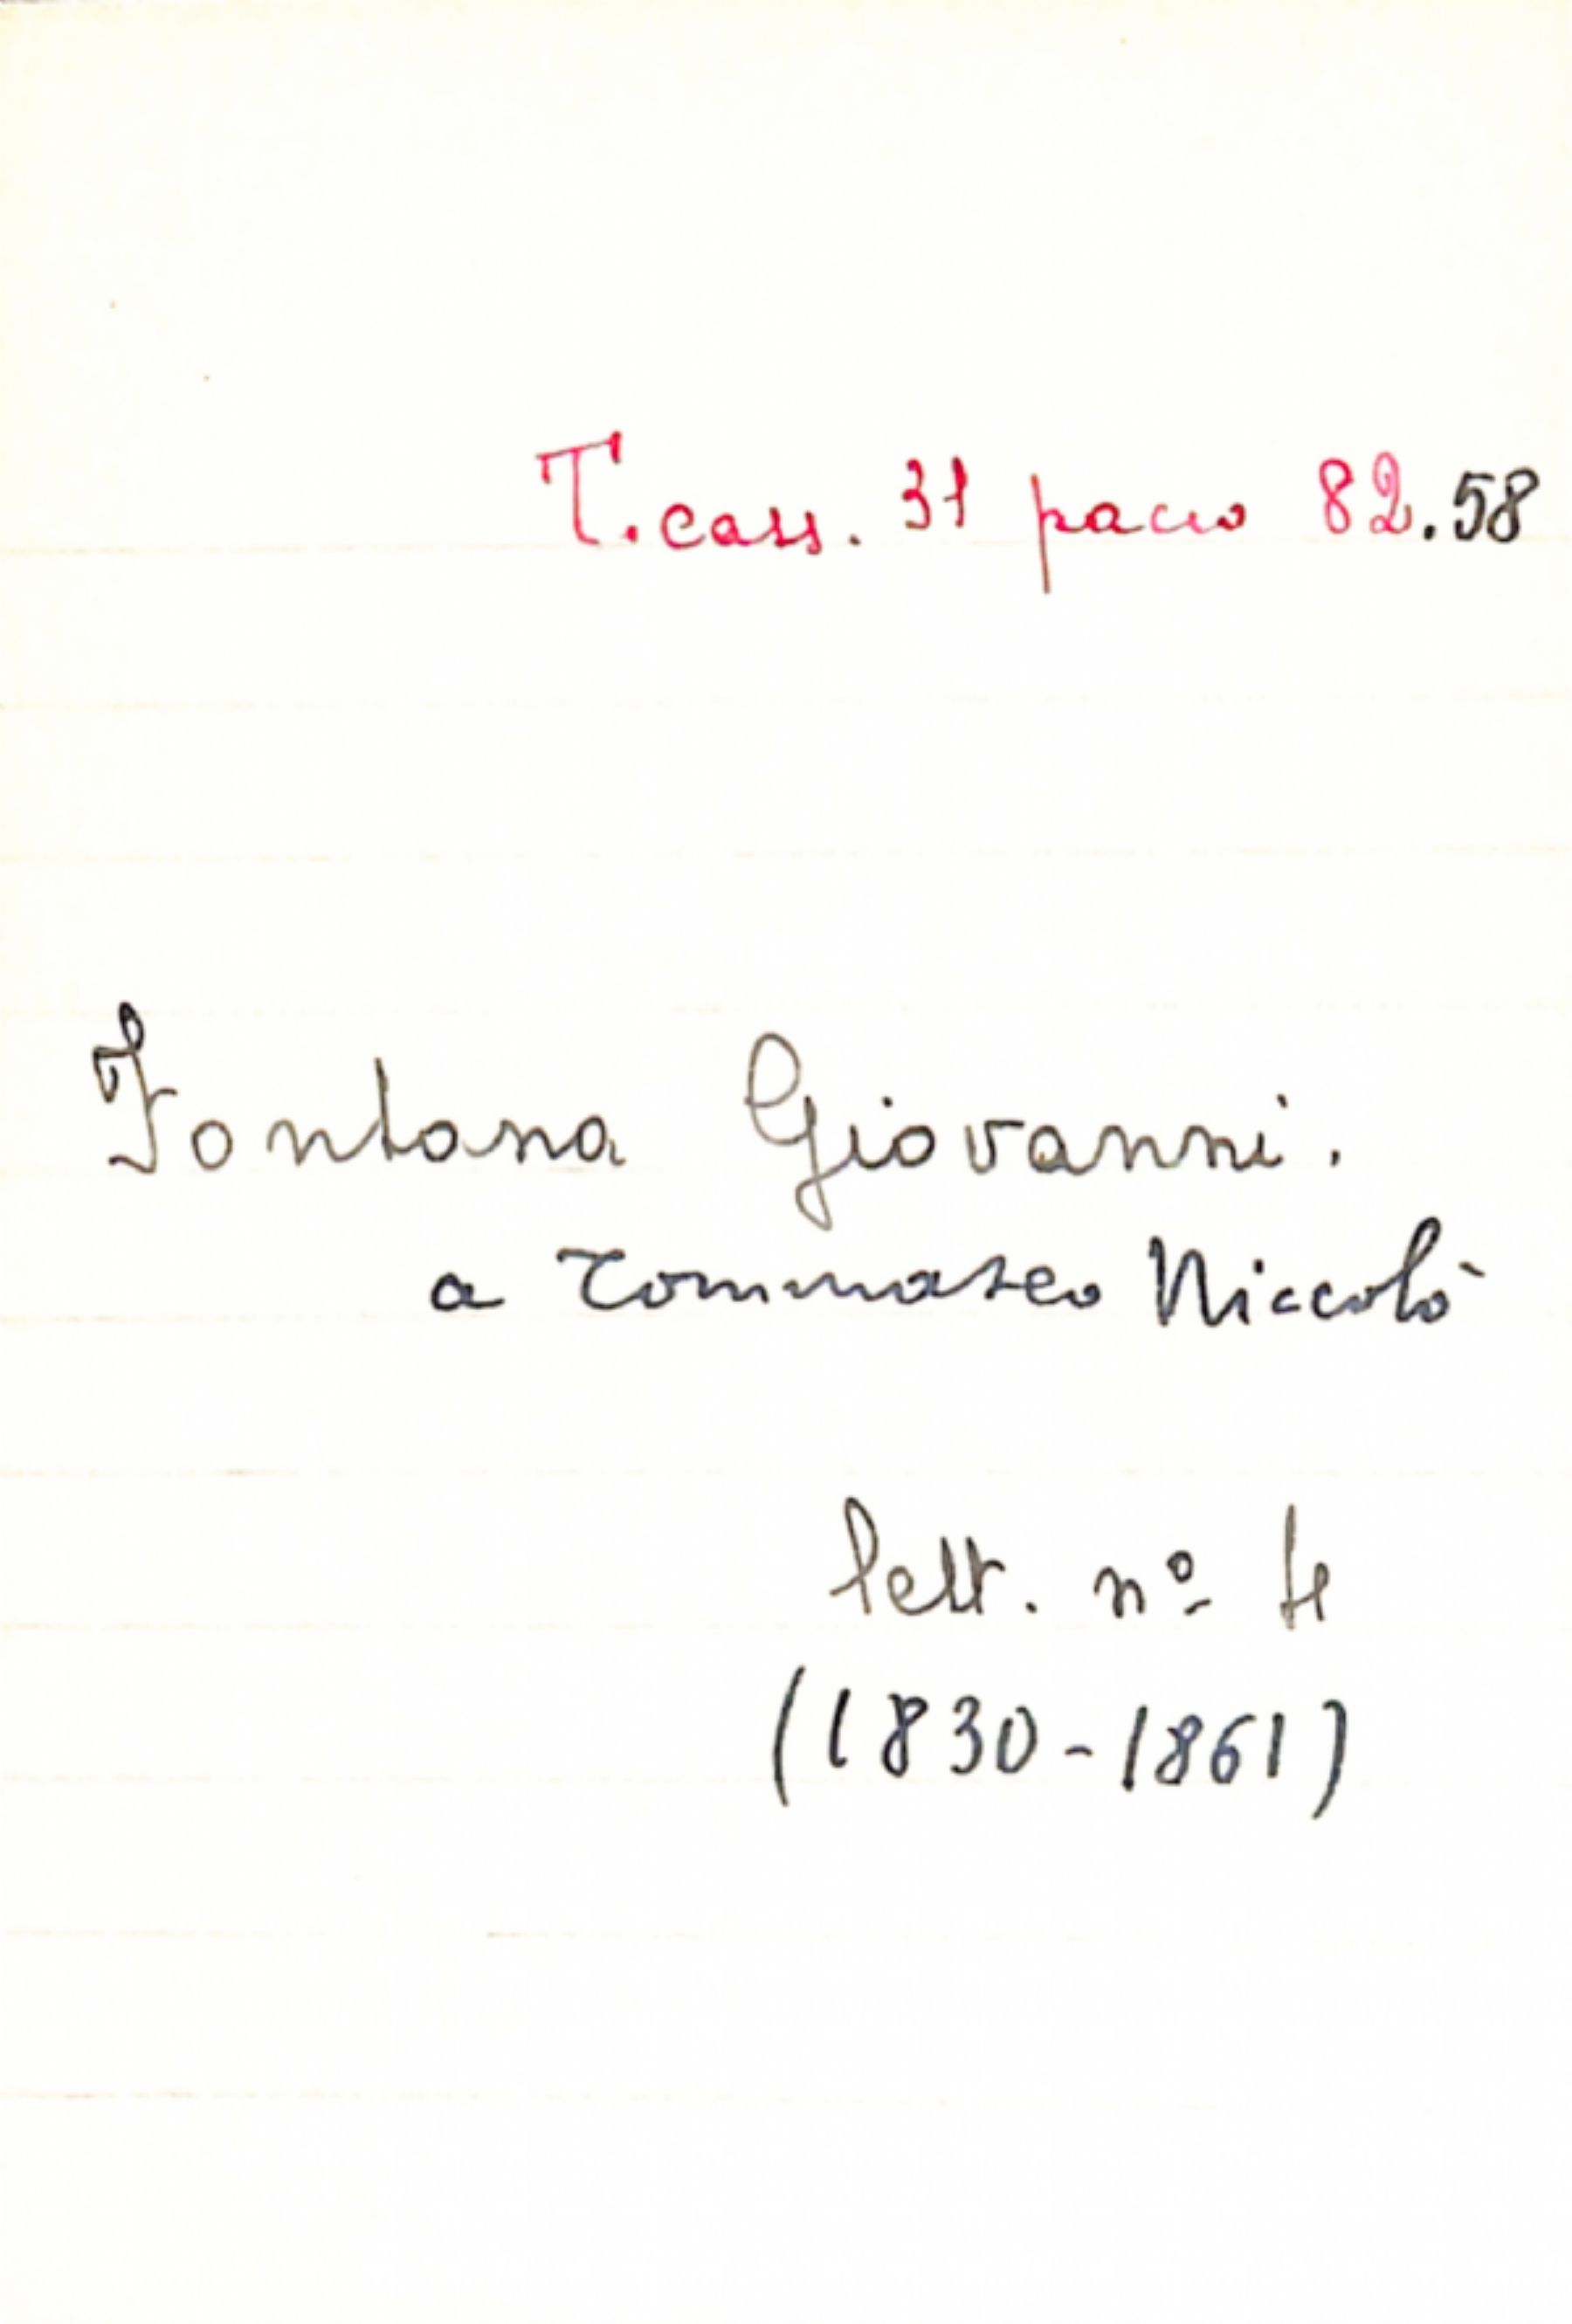 T. cass. 31 pacco 82.58
Fontana Giovanni.
a Tommaseo Niccolò
lett. nº 4
(1830-1861)